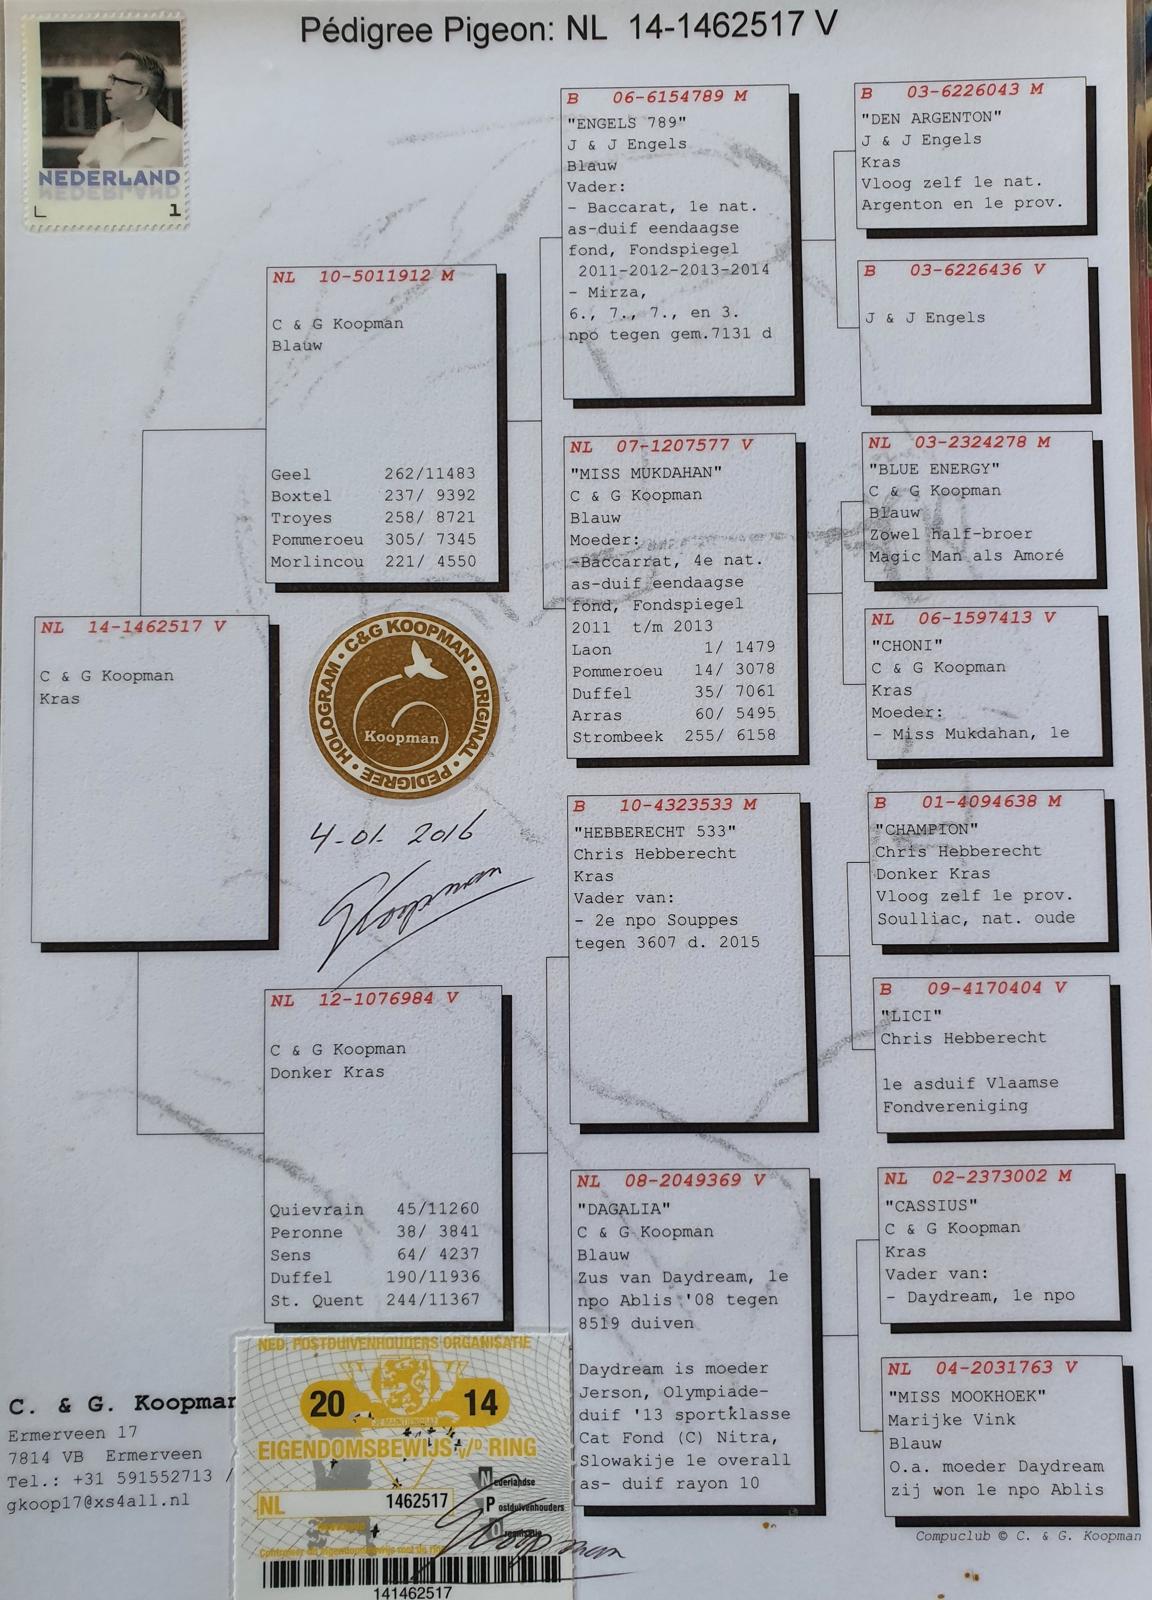 Pédigree Pigeon: NL 14-1462517 V
NEDERLAND
1
NL 14-1462517 V
C & G Koopman
Kras
NL 10-5011912 M
C & G Koopman
Blauw
Geel 262/11483
Boxtel 237/ 9392
Troyes 258/ 8721
Pommeroeu 305/ 7345
Morlincou 221/ 4550
HOLOGRAM • C&G KOOPMAN • ORIGINAL • PEDIGREE •
Koopman
4-01-2016
Koopman
NL 12-1076984 V
C & G Koopman
Donker Kras
Quievrain 45/11260
Peronne 38/ 3841
Sens 64/ 4237
Duffel 190/11936
St. Quent 244/11367
B 06-6154789 M
"ENGELS 789"
J & J Engels
Blauw
Vader:
- Baccarat, 1e nat.
as-duif eendaagse
fond, Fondspiegel
2011-2012-2013-2014
- Mirza,
6., 7., 7., en 3.
npo tegen gem.7131 d
NL 07-1207577 V
"MISS MUKDAHAN"
C & G Koopman
Blauw
Moeder:
-Baccarrat, 4e nat.
as-duif eendaagse
fond, Fondspiegel
2011 t/m 2013
Laon 1/ 1479
Pommeroeu 14/ 3078
Duffel 35/ 7061
Arras 60/ 5495
Strombeek 255/ 6158
B 10-4323533 M
"HEBBERECHT 533"
Chris Hebberecht
Kras
Vader van:
- 2e npo Souppes
tegen 3607 d. 2015
NL 08-2049369 V
"DAGALIA"
C & G Koopman
Blauw
Zus van Daydream, 1e
npo Ablis '08 tegen
8519 duiven
Daydream is moeder
Jerson, Olympiade-
duif '13 sportklasse
Cat Fond (C) Nitra,
Slowakije 1e overall
as- duif rayon 10
B 03-6226043 M
"DEN ARGENTON"
J & J Engels
Kras
Vloog zelf 1e nat.
Argenton en 1e prov.
B 03-6226436 V
J & J Engels
NL 03-2324278 M
"BLUE ENERGY"
C & G Koopman
Blauw
Zowel half-broer
Magic Man als Amoré
NL 06-1597413 V
"CHONI"
C & G Koopman
Kras
Moeder:
- Miss Mukdahan, 1e
B 01-4094638 M
"CHAMPION"
Chris Hebberecht
Donker Kras
Vloog zelf 1e prov.
Soulliac, nat. oude
B 09-4170404 V
"LICI"
Chris Hebberecht
1e asduif Vlaamse
Fondvereniging
NL 02-2373002 M
"CASSIUS"
C & G Koopman
Kras
Vader van:
- Daydream, 1e npo
NL 04-2031763 V
"MISS MOOKHOEK"
Marijke Vink
Blauw
O.a. moeder Daydream
zij won 1e npo Ablis
Compuclub © C. & G. Koopman
C. & G. Koopman
Ermerveen 17
7814 VB Ermerveen
Tel.: +31 591552713 /
gkoop17@xs4all.nl
NED. POSTDUIVENHOUDERS ORGANISATIE
20 14
JE MAINTIENDRAI
EIGENDOMSBEWIJS v/d RING
Nederlandse
Postduivenhouders
Organisatie
NL 1462517
Koopman
141462517